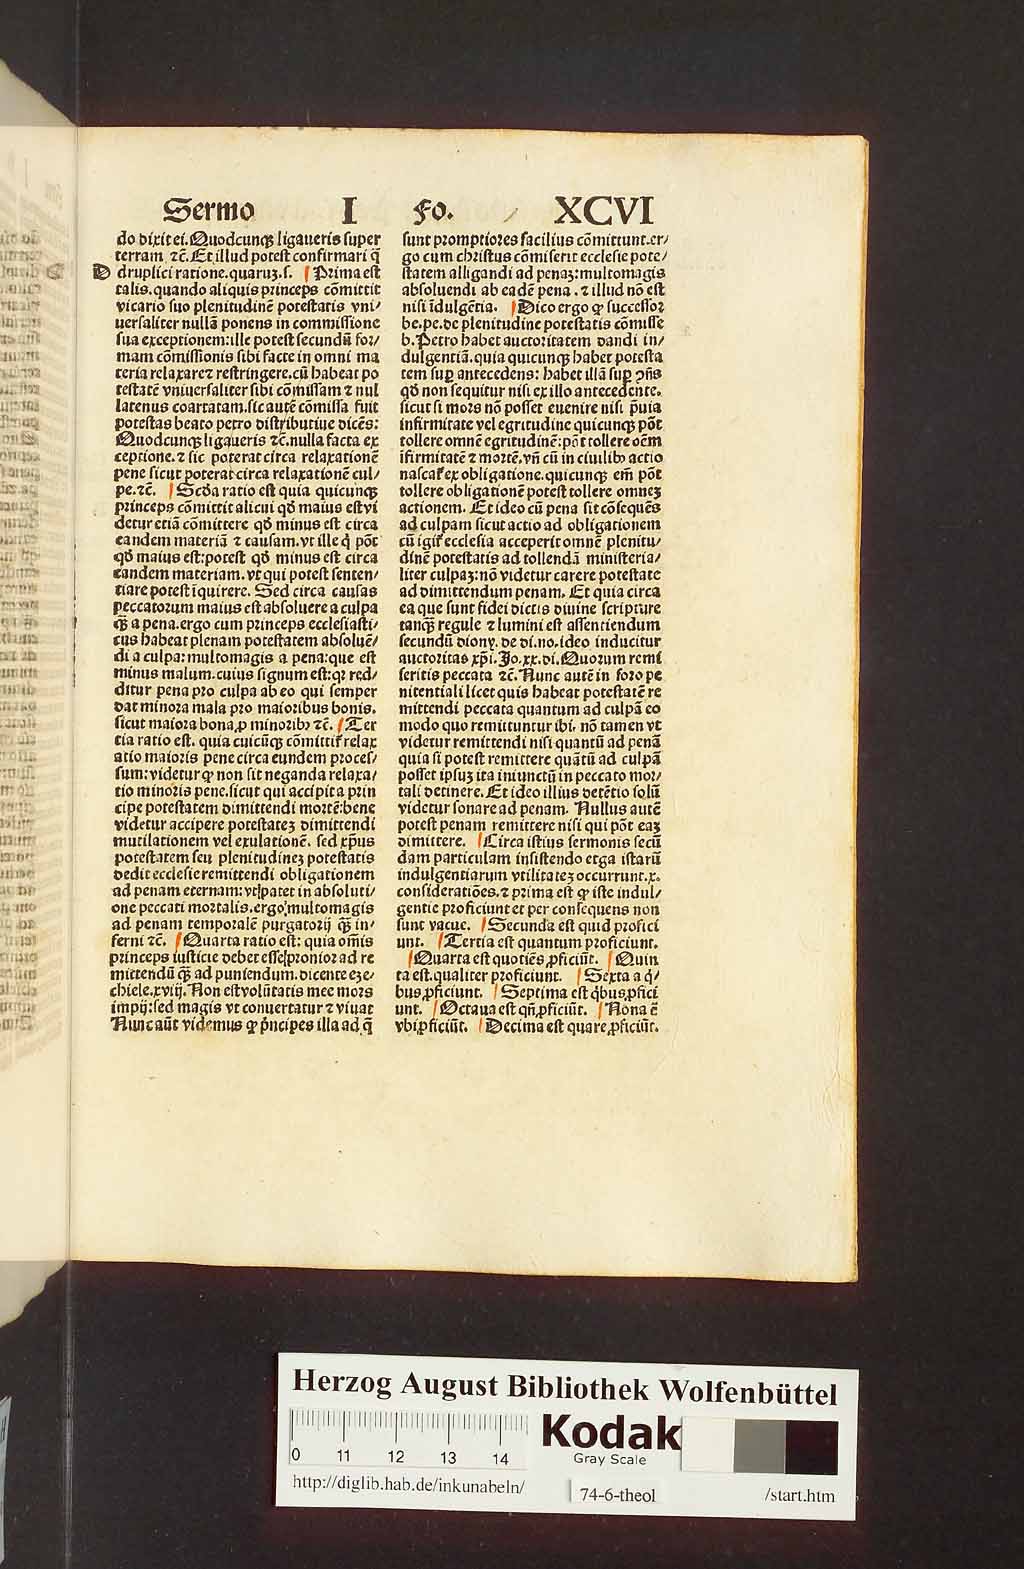 Sermo I Fo. XCVI
do dixit ei. Quodcunqꝫ ligaueris super
terram ⁊c̄. Et illud potest confirmari q̄
D druplici ratione. quaruꝫ. s. Prima est
talis. quando aliquis princeps cōmittit
vicario suo plenitudinē potestatis vni/
uersaliter nullā ponens in commissione
sua exceptionem: ille potest secundū for/
mam cōmissionis sibi facte in omni ma
teria relaxare ⁊ restringere. cū habeat po
testatē vniuersaliter sibi cōmissam ⁊ nul
latenus coartatam. sic autē cōmissa fuit
potestas beato petro distributiue dicēs:
Quodcunqꝫ ligaueris ⁊c̄. nulla facta ex
ceptione. ⁊ sic poterat circa relaxationē
pene sicut poterat circa relaxationē cul/
pe. ⁊c̄. Scd̓a ratio est quia quicunqꝫ
princeps cōmittit alicui qd̓ maius est vi
detur etiā cōmittere qd̓ minus est circa
eandem materiā ⁊ causam. vt ille q̇ pōt
qd̓ maius est: potest qd̓ minus est circa
eandem materiam. vt qui potest senten/
tiare potest īquirere. Sed circa causas
peccatorum maius est absoluere a culpa
qꝫ̄ a pena. ergo cum princeps ecclesiasti/
cus habeat plenam potestatem absoluē/
di a culpa: multomagis a pena: que est
minus malum. cuius signum est: qꝛ red/
ditur pena pro culpa ab eo qui semper
dat minora mala pro maioribus bonis.
sicut maiora bona ꝓ minoribꝰ ⁊c̄. Ter
tia ratio est. quia cuicūqꝫ cōmittit̄ relax
atio maioris pene circa eundem proces/
sum: videtur ꝙ non sit neganda relaxa/
tio minoris pene. sicut qui accipit a prin
cipe potestatem dimittendi mortē: bene
videtur accipere potestateꝫ dimittendi
mutilationem vel exulationē. sed xp̄us
potestatem seu plenitudineꝫ potestatis
dedit ecclesie remittendi obligationem
ad penam eternam: vt patet in absoluti/
one peccati mortalis. ergo multomagis
ad penam temporalē purgatorij qꝫ̄ in/
ferni ⁊c̄. Quarta ratio est: quia om̄is
princeps iusticie debet esse pronior ad re
mittendū qꝫ̄ ad puniendum. dicente eze/
chiele. xviij. Non est volūtatis mee mors
impij: sed magis vt conuertatur ⁊ viuat
Nunc aūt videmus ꝙ pn̄cipes illa ad q̄
sunt promptiores facilius cōmittunt. er/
go cum christus cōmiserit ecclesie pote/
statem alligandi ad penaꝫ: multomagis
absoluendi ab eadē pena. ⁊ illud nō est
nisi īdulgētia. Dico ergo ꝙ successor
be. pe. de plenitudine potestatis cōmisse
b. Petro habet auctoritatem dandi in/
dulgentiā. quia quicunqꝫ habet potesta
tem suꝑ antecedens: habet illā suꝑ ꝯn̄s
qd̓ non sequitur nisi ex illo antecedente.
sicut si mors nō posset euenire nisi p̄uia
infirmitate vel egritudine quicunqꝫ pōt
tollere omnē egritudinē: pōt tollere oēm
īfirmitatē ⁊ mortē. vn̄ cū in ciuilibꝰ actio
nascat̄ ex obligatione. quicunqꝫ em̄ pōt
tollere obligationē potest tollere omneꝫ
actionem. Et ideo cū pena sit cōsequēs
ad culpam sicut actio ad obligationem
cū igit̄ ecclesia acceperit omnē plenitu/
dinē potestatis ad tollendā ministeria/
liter culpaꝫ: nō videtur carere potestate
ad dimittendum penam. Et quia circa
ea que sunt fidei dictis diuine scripture
tanqꝫ̄ regule ⁊ lumini est assentiendum
secundū diony. de di. no. ideo inducitur
auctoritas xp̄i. Jo. xx. di. Quorum remi
seritis peccata ⁊c̄. Nunc autē in foro pe
nitentiali licet quis habeat potestatē re
mittendi peccata quantum ad culpā eo
modo quo remittuntur ibi. nō tamen vt
videtur remittendi nisi quantū ad penā
quia si potest remittere quātū ad culpā
posset ipsuꝫ ita iniunctū in peccato mor/
tali detinere. Et ideo illius detētio solū
videtur sonare ad penam. Nullus autē
potest penam remittere nisi qui pōt eaꝫ
dimittere. Circa istius sermonis secū
dam particulam insistendo erga istarū
indulgentiarum vtilitateꝫ occurrunt. x.
consideratiōes. ⁊ prima est ꝙ iste indul/
gentie proficiunt et per consequens non
sunt vacue. Secunda est quid profici
unt. Tertia est quantum proficiunt.
Quarta est quotiēs ꝓficiūt. Quin
ta est. qualiter proficiunt. Sexta a q̇/
bus ꝓficiunt. Septima est q̇bus ꝓfici
unt. Octaua est qn̄ ꝓficiūt. Nona ē
vbi ꝓficiūt. Decima est quare ꝓficiūt.
Herzog August Bibliothek Wolfenbüttel
0 11 12 13 14
Kodak
Gray Scale
http://diglib.hab.de/inkunabeln/ 74-6-theol /start.htm